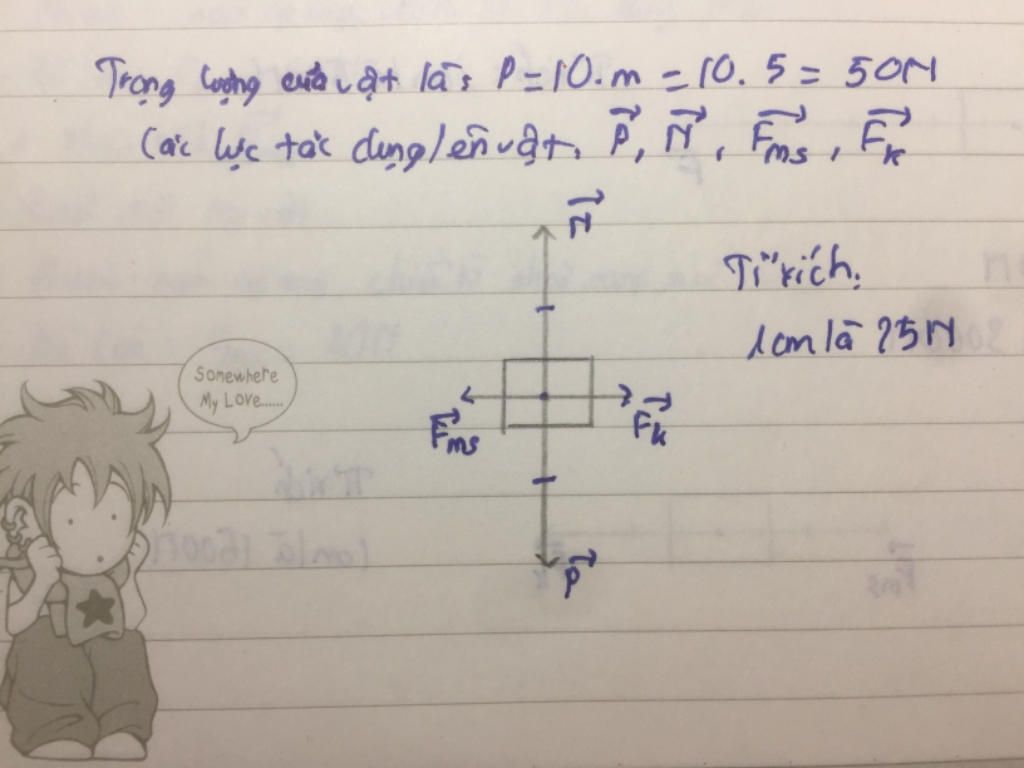 Trọng lượng của vật là: P = 10.m = 10.5 = 50N
Các lực tác dụng lên vật: P⃗, N⃗, F⃗ms, F⃗k
N⃗
Tỉ xích:
1cm là 25N
Somewhere
My Love......
F⃗ms
F⃗k
P⃗